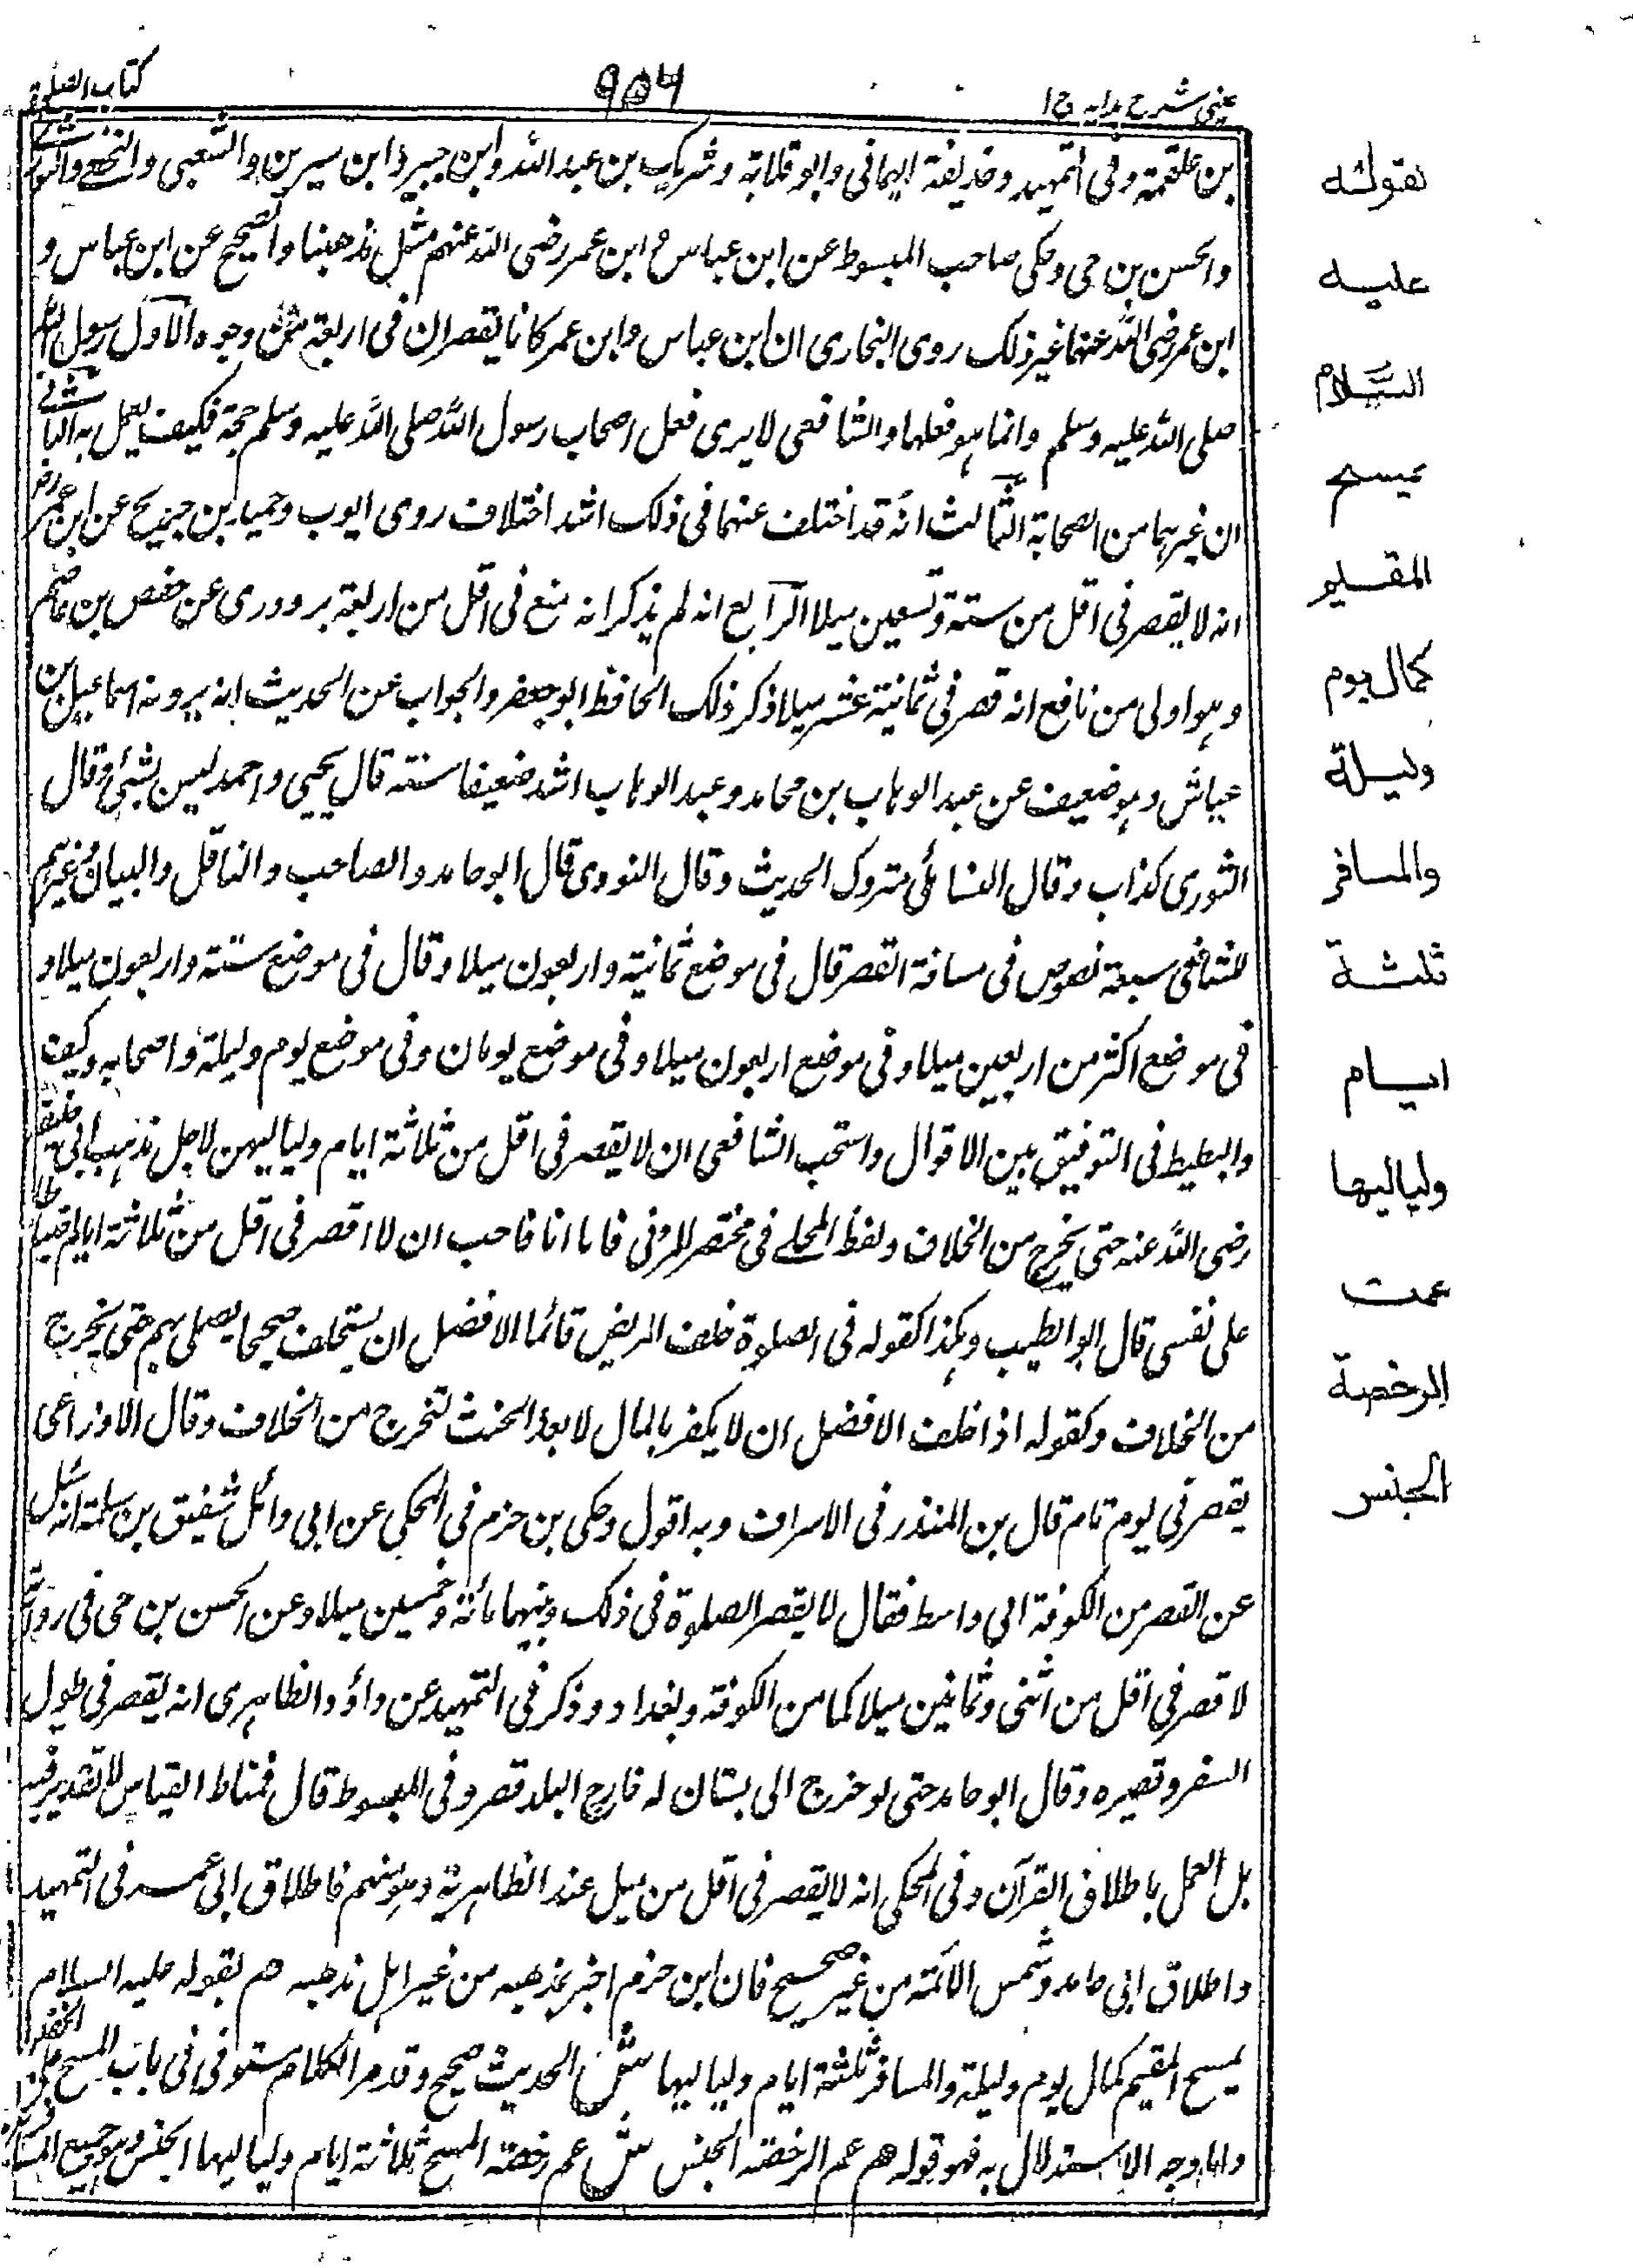 عینی شرح ہدایہ ج ا
٩٥٦
کتاب الصلوة
بن علقمة وفى التمهيد وحذيفة اليمانى وابو قلابة وشريك بن عبد الله وابن جبير وابن سيرين والشعبى والنخعى والثورى
والحسن بن حى وحكى صاحب المبسوط عن ابن عباس و ابن عمر رضى الله عنهم مثل مذهبنا والصحيح عن ابن عباس و
ابن عمر رضى الله عنهما غير ذلك روى البخارى ان ابن عباس وابن عمر كانا يقصران فى اربعة وجوه الاول رسول الله
صلى الله عليه وسلم وانما هو فعلهما والشافعى لا يرى فعل اصحاب رسول الله صلى الله عليه وسلم حجة فكيف يعمل به الثانى
ان غيرهما من الصحابة الثالث انه قد اختلف عنهما فى ذلك اشد اختلاف روى ايوب وحميد بن جريج عن ابن عمر
انه لا يقصر فى اقل من ستة وتسعين ميلا الرابع انه لم يذكر انه منع فى اقل من اربعة برد وروى عن حفص بن عاصم
وهو اولى من نافع انه قصر فى ثمانية عشر ميلا ذكر ذلك الحافظ ابو جعفر والجواب عن الحديث انه يرويه اسماعيل بن
عياش وهو ضعيف عن عبد الوهاب بن مجاهد وعبد الوهاب اشد ضعيفا منه قال يحيى واحمد ليس بشئ وقال
الثورى كذاب وقال النسائى متروك الحديث وقال النووى قال ابو حامد والصاحب والناقل والبيان وغيرهم
للشافعى سبعة نصوص فى مسافة القصر قال فى موضع ثمانية واربعون ميلا وقال فى موضع ستة واربعون ميلا و
فى موضع اكثر من اربعين ميلا وفى موضع اربعون ميلا وفى موضع يومان وفى موضع يوم وليلة واصحابه وكيف
والبطيط فى التوفيق بين الاقوال واستحب الشافعى ان لا يقصر فى اقل من ثلاثة ايام ولياليهن لاجل مذهب ابى حنيفة
رضى الله عنه حتى يخرج من الخلاف ولفظ المحلے فى مختصر للمزنى فاما انا فاحب ان لا اقصر فى اقل من ثلاثة ايام احتياطا
على نفسى قال ابو الطيب وهكذا كقوله فى الصلوة خلف المريض قائما الافضل ان يستخلف صحيحا يصلى بهم حتى يخرج
من الخلاف وكقوله اذا حلف الافضل ان لا يكفر بالمال لا بعد الحنث لتخرج من الخلاف وقال الاوزاعى
يقصر فى يوم تام قال بن المنذر فى الاسراف وبه اقول وحكى بن حزم فى المحكى عن ابى وائل شفيق بن سلمة انه سئل
عن القصر من الكوفة الى واسط فقال لا يقصر الصلوة فى ذلك وبينهما مائة وخمسين ميلا وعن الحسن بن حى فى رواية
لا قصر فى اقل من اثنى وثمانين ميلا كما من الكوفة وبغداد وذكر فى التمهيد عن داؤد الظاهرى انه يقصر فى طول
السفر وقصيره وقال ابو حامد حتى لو خرج الى بستان له خارج البلد قصر وفى المبسوط قال فمناط القياس لا تقدير فيه
بل العمل باطلاق القرآن وفى المحكى انه لا يقصر فى اقل من ميل عند الظاهرية وهو منهم فاطلاق ابى عمر فى التمهيد
واطلاق ابى حامد وشمس الائمة من غير صحيح فان ابن حزم اخبر بمذهبه من غير اهل مذهبه هم لقوله عليه السلام
يمسح المقيم كمال يوم وليلة والمسافر ثلثة ايام ولياليها ش الحديث صحيح وقد مر الكلام مستوفى فى باب المسح على الخفين
واما وجه الاستدلال به فهو قوله هم عم الرخصة الجنس ش عم رخصة المسح ثلاثة ايام ولياليها الجنس وهو جميع المسافرين
لقوله
عليه
السلام
يمسح
المقيم
كمال يوم
وليلة
والمسافر
ثلثة
ايام
ولياليها
عمت
الرخصة
الجنس